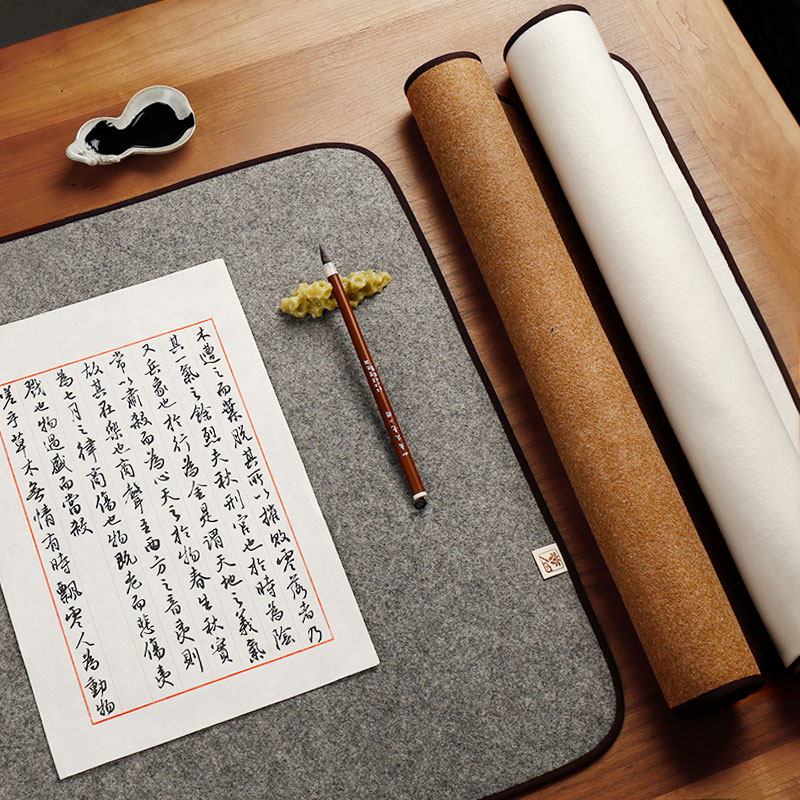 木遭之而葉脫其所以摧敗零落者乃
其一氣之餘烈夫秋刑官也於時為陰
又兵象也於行為金是謂天地之義氣
常以肅殺而為心天之於物春生秋實
故其在樂也商聲主西方之音夷則
為七月之律商傷也物既老而悲傷夷
戮也物過盛而當殺
嗟乎草木無情有時飄零人為動物